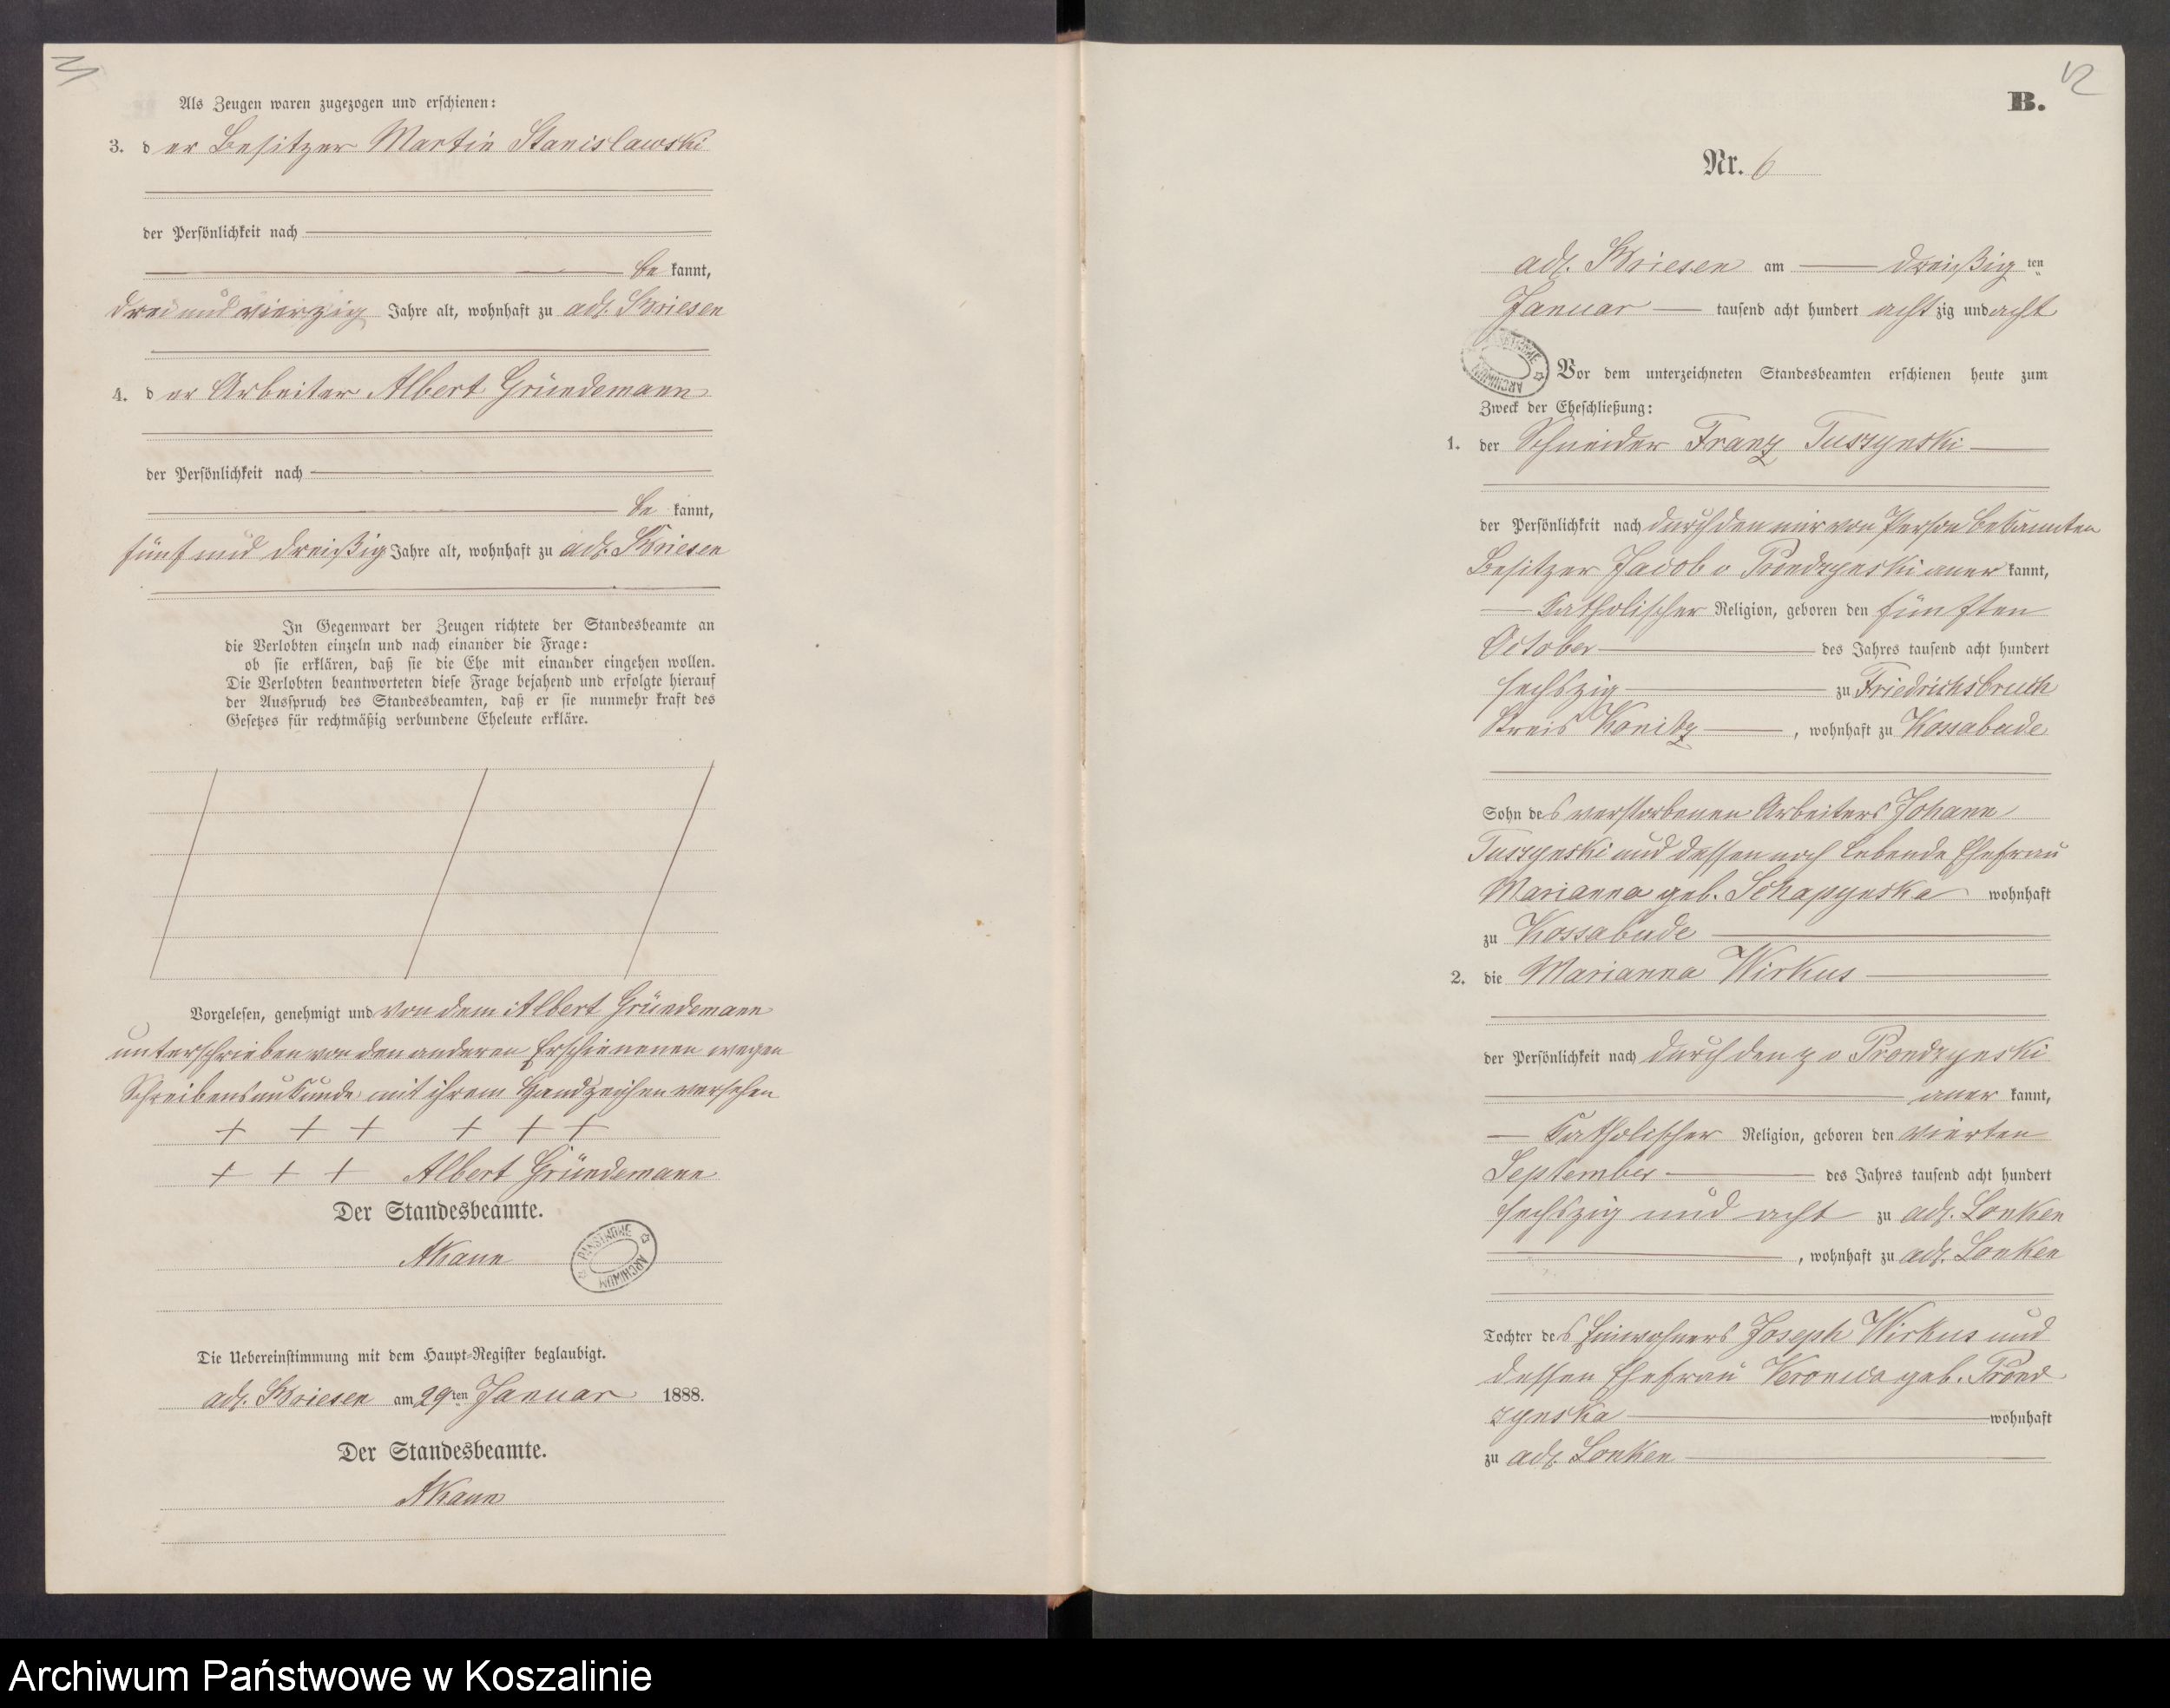 Als Zeugen waren zugezogen und erschienen:
3. der Besitzer Martin Stanislawski
der Persönlichkeit nach
be kannt,
drei und vierzig Jahre alt, wohnhaft zu adl. Briesen
4. der Arbeiter Albert Gründemann
der Persönlichkeit nach
be kannt,
fünf und dreißig Jahre alt, wohnhaft zu adl. Briesen
In Gegenwart der Zeugen richtete der Standesbeamte an
die Verlobten einzeln und nach einander die Frage:
ob sie erklären, daß sie die Ehe mit einander eingehen wollen.
Die Verlobten beantworteten diese Frage bejahend und erfolgte hierauf
der Ausspruch des Standesbeamten, daß er sie nunmehr kraft des
Gesetzes für rechtmäßig verbundene Eheleute erkläre.
Vorgelesen, genehmigt und von dem Albert Gründemann
unterschrieben von den anderen Erschienenen wegen
Schreibensunkunde mit ihrem Handzeichen versehen
+ + + + + +
+ + + Albert Gründemann
Der Standesbeamte.
ARCHIWUM PAŃSTWOWE
Die Uebereinstimmung mit dem Haupt-Register beglaubigt.
adl. Briesen am 29ten Januar 1888.
Der Standesbeamte.
12
B.
Nr. 6
adl. Briesen am dreißig ten
Januar tausend acht hundert acht zig und acht
ARCHIWUM PAŃSTWOWE
Vor dem unterzeichneten Standesbeamten erschienen heute zum
Zweck der Eheschließung:
1. der Schneider Franz Tuszynski
der Persönlichkeit nach durch den mir von Person bekannten
Besitzer Jacob v Prondzynski aner kannt,
katholischer Religion, geboren den fünften
October des Jahres tausend acht hundert
sechszig zu Friedrichsbruch
Kreis Konitz, wohnhaft zu Kossabude
Sohn des verstorbenen Arbeiters Johann
Tuszynski und dessen noch lebende Ehefrau
Marianna geb. Schapynska wohnhaft
zu Kossabude
2. die Marianna Wirkus
der Persönlichkeit nach durch den p v Prondzynski
aner kannt,
katholischer Religion, geboren den vierten
September des Jahres tausend acht hundert
sechszig und acht zu adl. Lonken
, wohnhaft zu adl. Lonken
Tochter des Einwohners Joseph Wirkus und
dessen Ehefrau Veronica geb. Prond
zynska wohnhaft
zu adl. Lonken
Archiwum Państwowe w Koszalinie